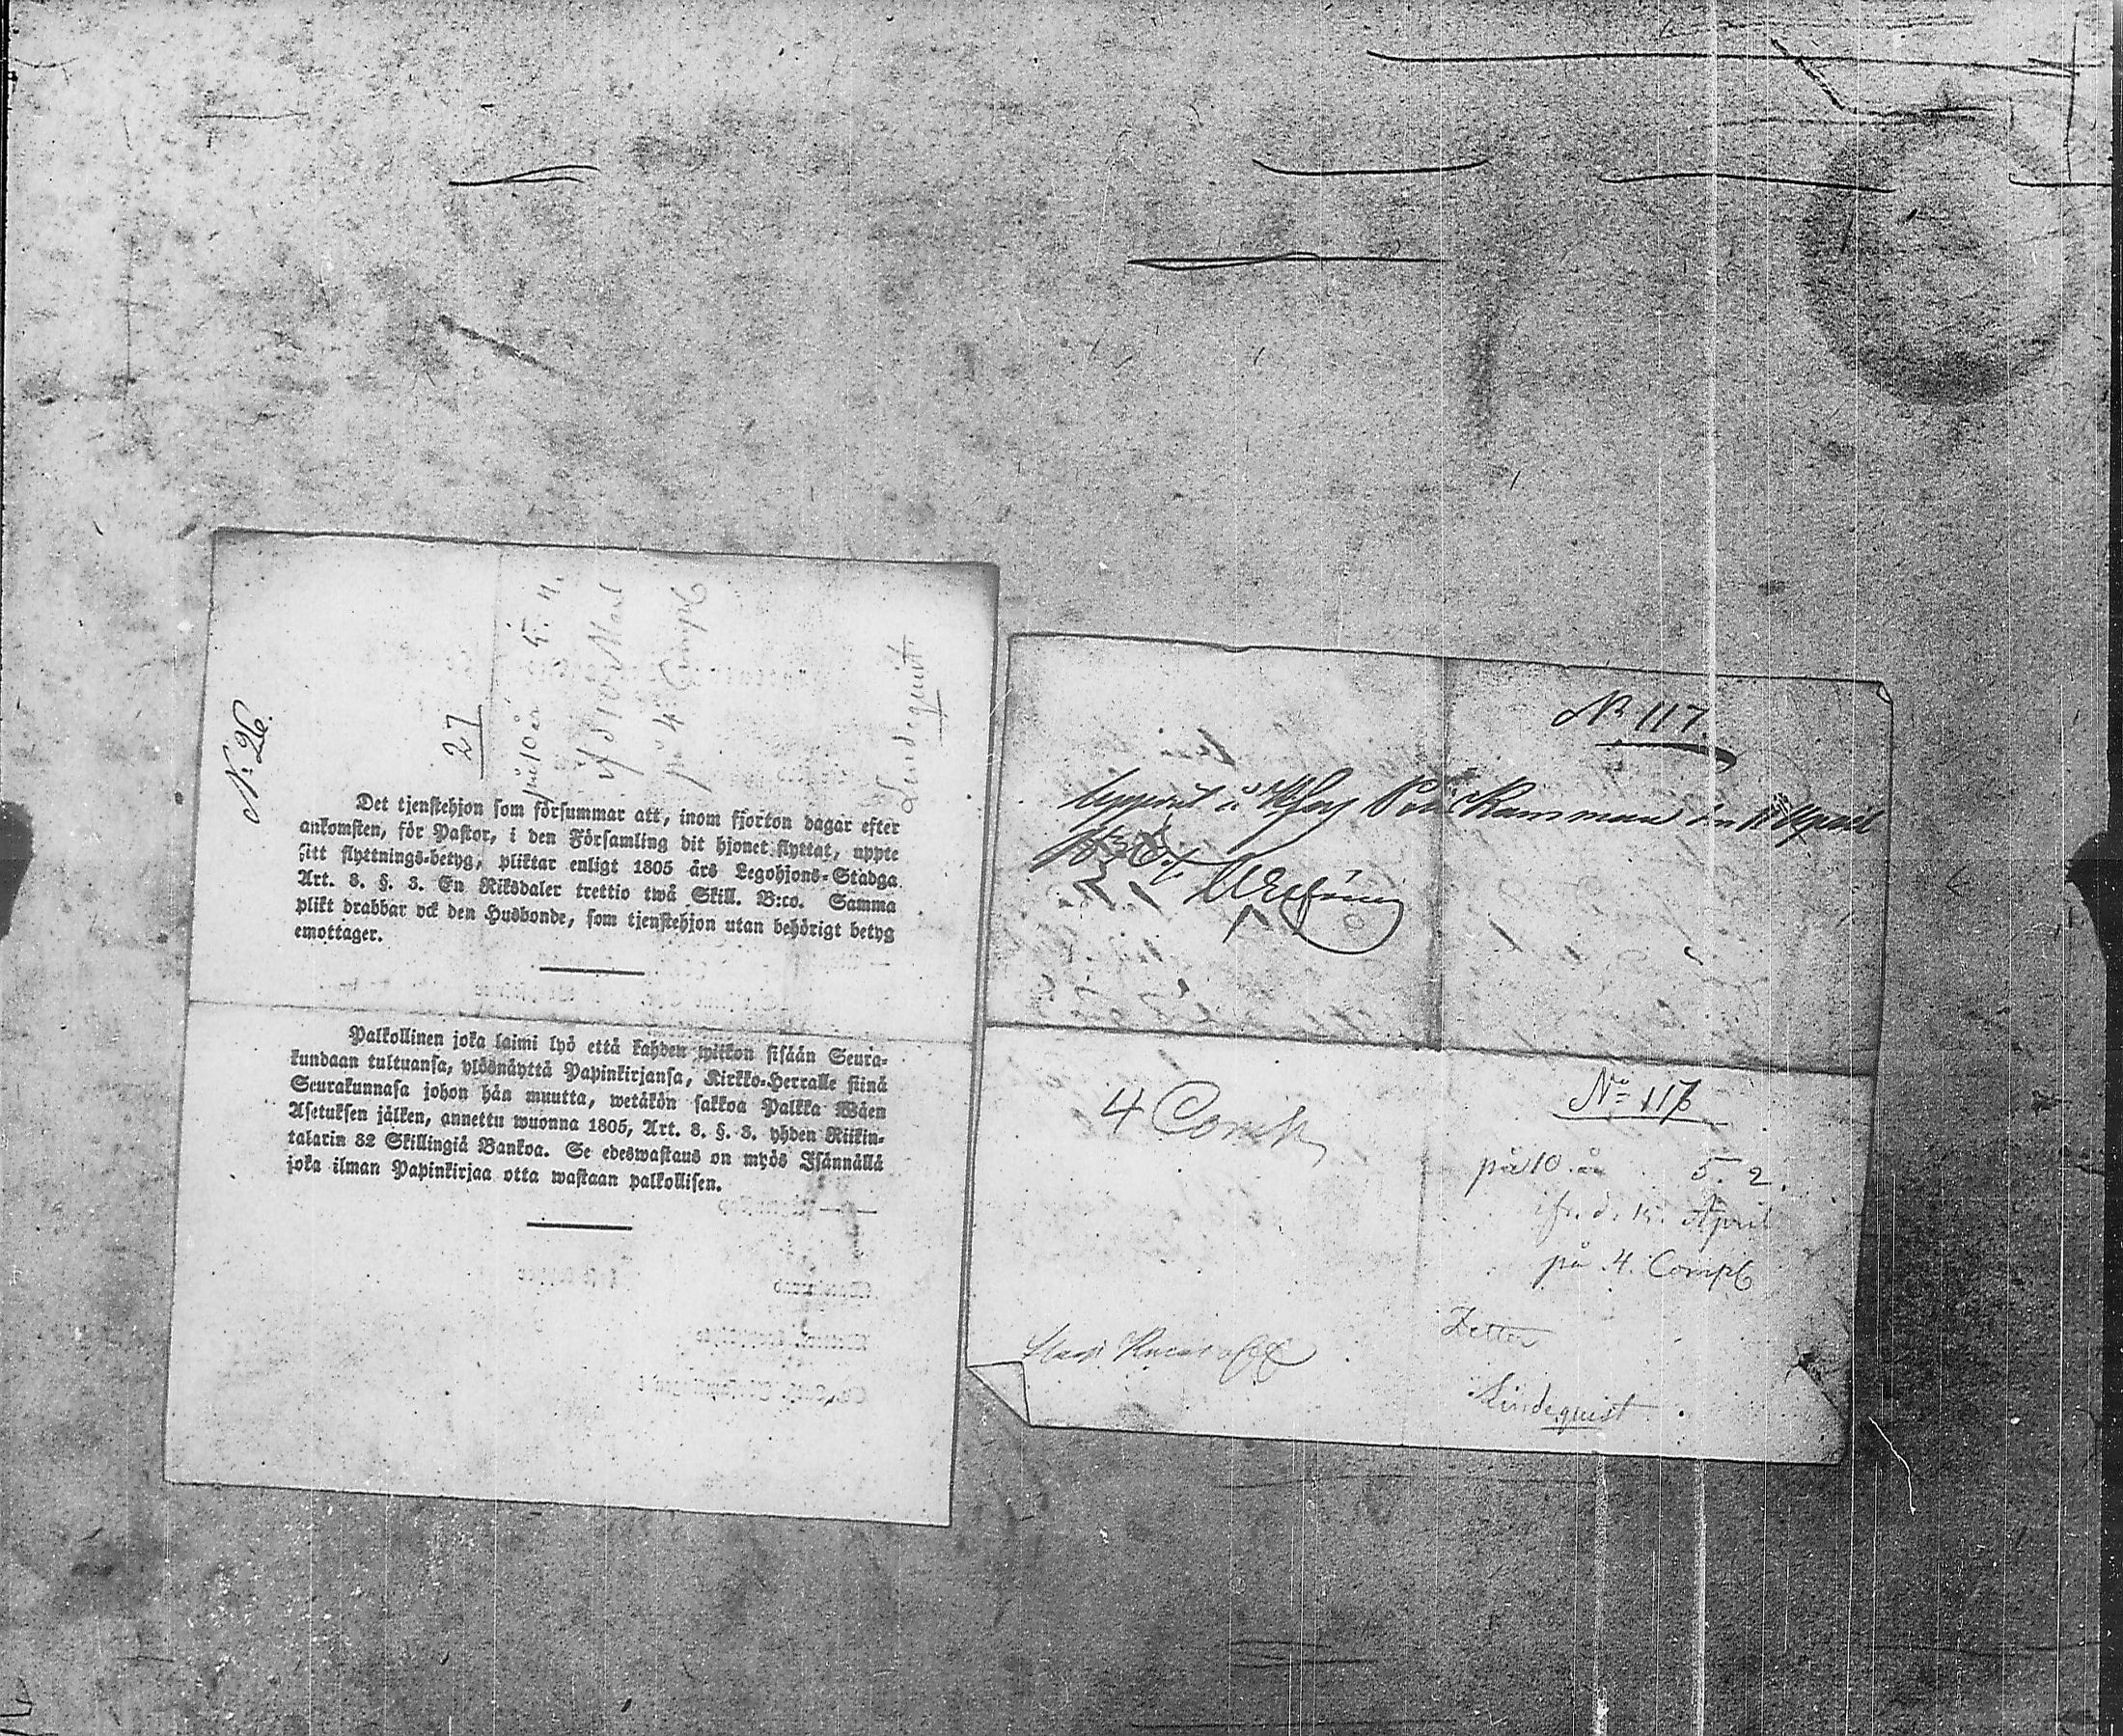 N: 26.
27
på 10 år 5. 11.
på 4 Comp
Lindequist
Det tjenstehjon som försummar att, inom fjorton dagar efter
ankomsten, för Pastor, i den Församling dit hjonet flyttat, uppte
sitt flyttnings-betyg, pliktar enligt 1805 års Legohjons-Stadga
Art. 8. §. 3. En Riksdaler trettio twå Skill. B:co. Samma
plikt drabbar ock den Husbonde, som tjenstehjon utan behörigt betyg
emottager.
Palkollinen joka laimi lyö että kahden wiikon sisään Seura-
kundaan tultuansa, ylösnäyttä Papinkirjansa, Kirkko-Herralle siinä
Seurakunnasa johon hän muutta, wetäkön sakkoa Palkka Wäen
Asetuksen jälken, annettu wuonna 1805, Art. 8. §. 3. yhden Riikin-
talarin 32 Skillingiä Bankoa. Se edeswastaus on myös Isännällä
joka ilman Papinkirjaa otta wastaan palkollisen.
N: 117.
Uppvist i Poliskammaren den April
4 Comp
No 117
på 10 år 5. 2.
ifr. d. 15. April
på 4. Comp
Zetter
Lindequist